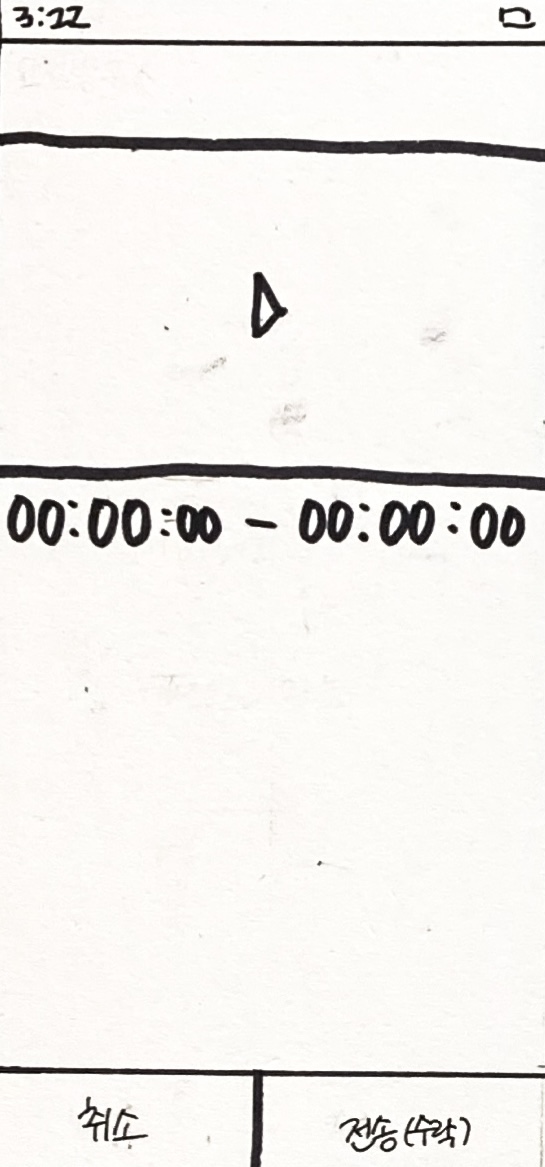 3:22
00:00:00 - 00:00:00
취소
전송(수락)